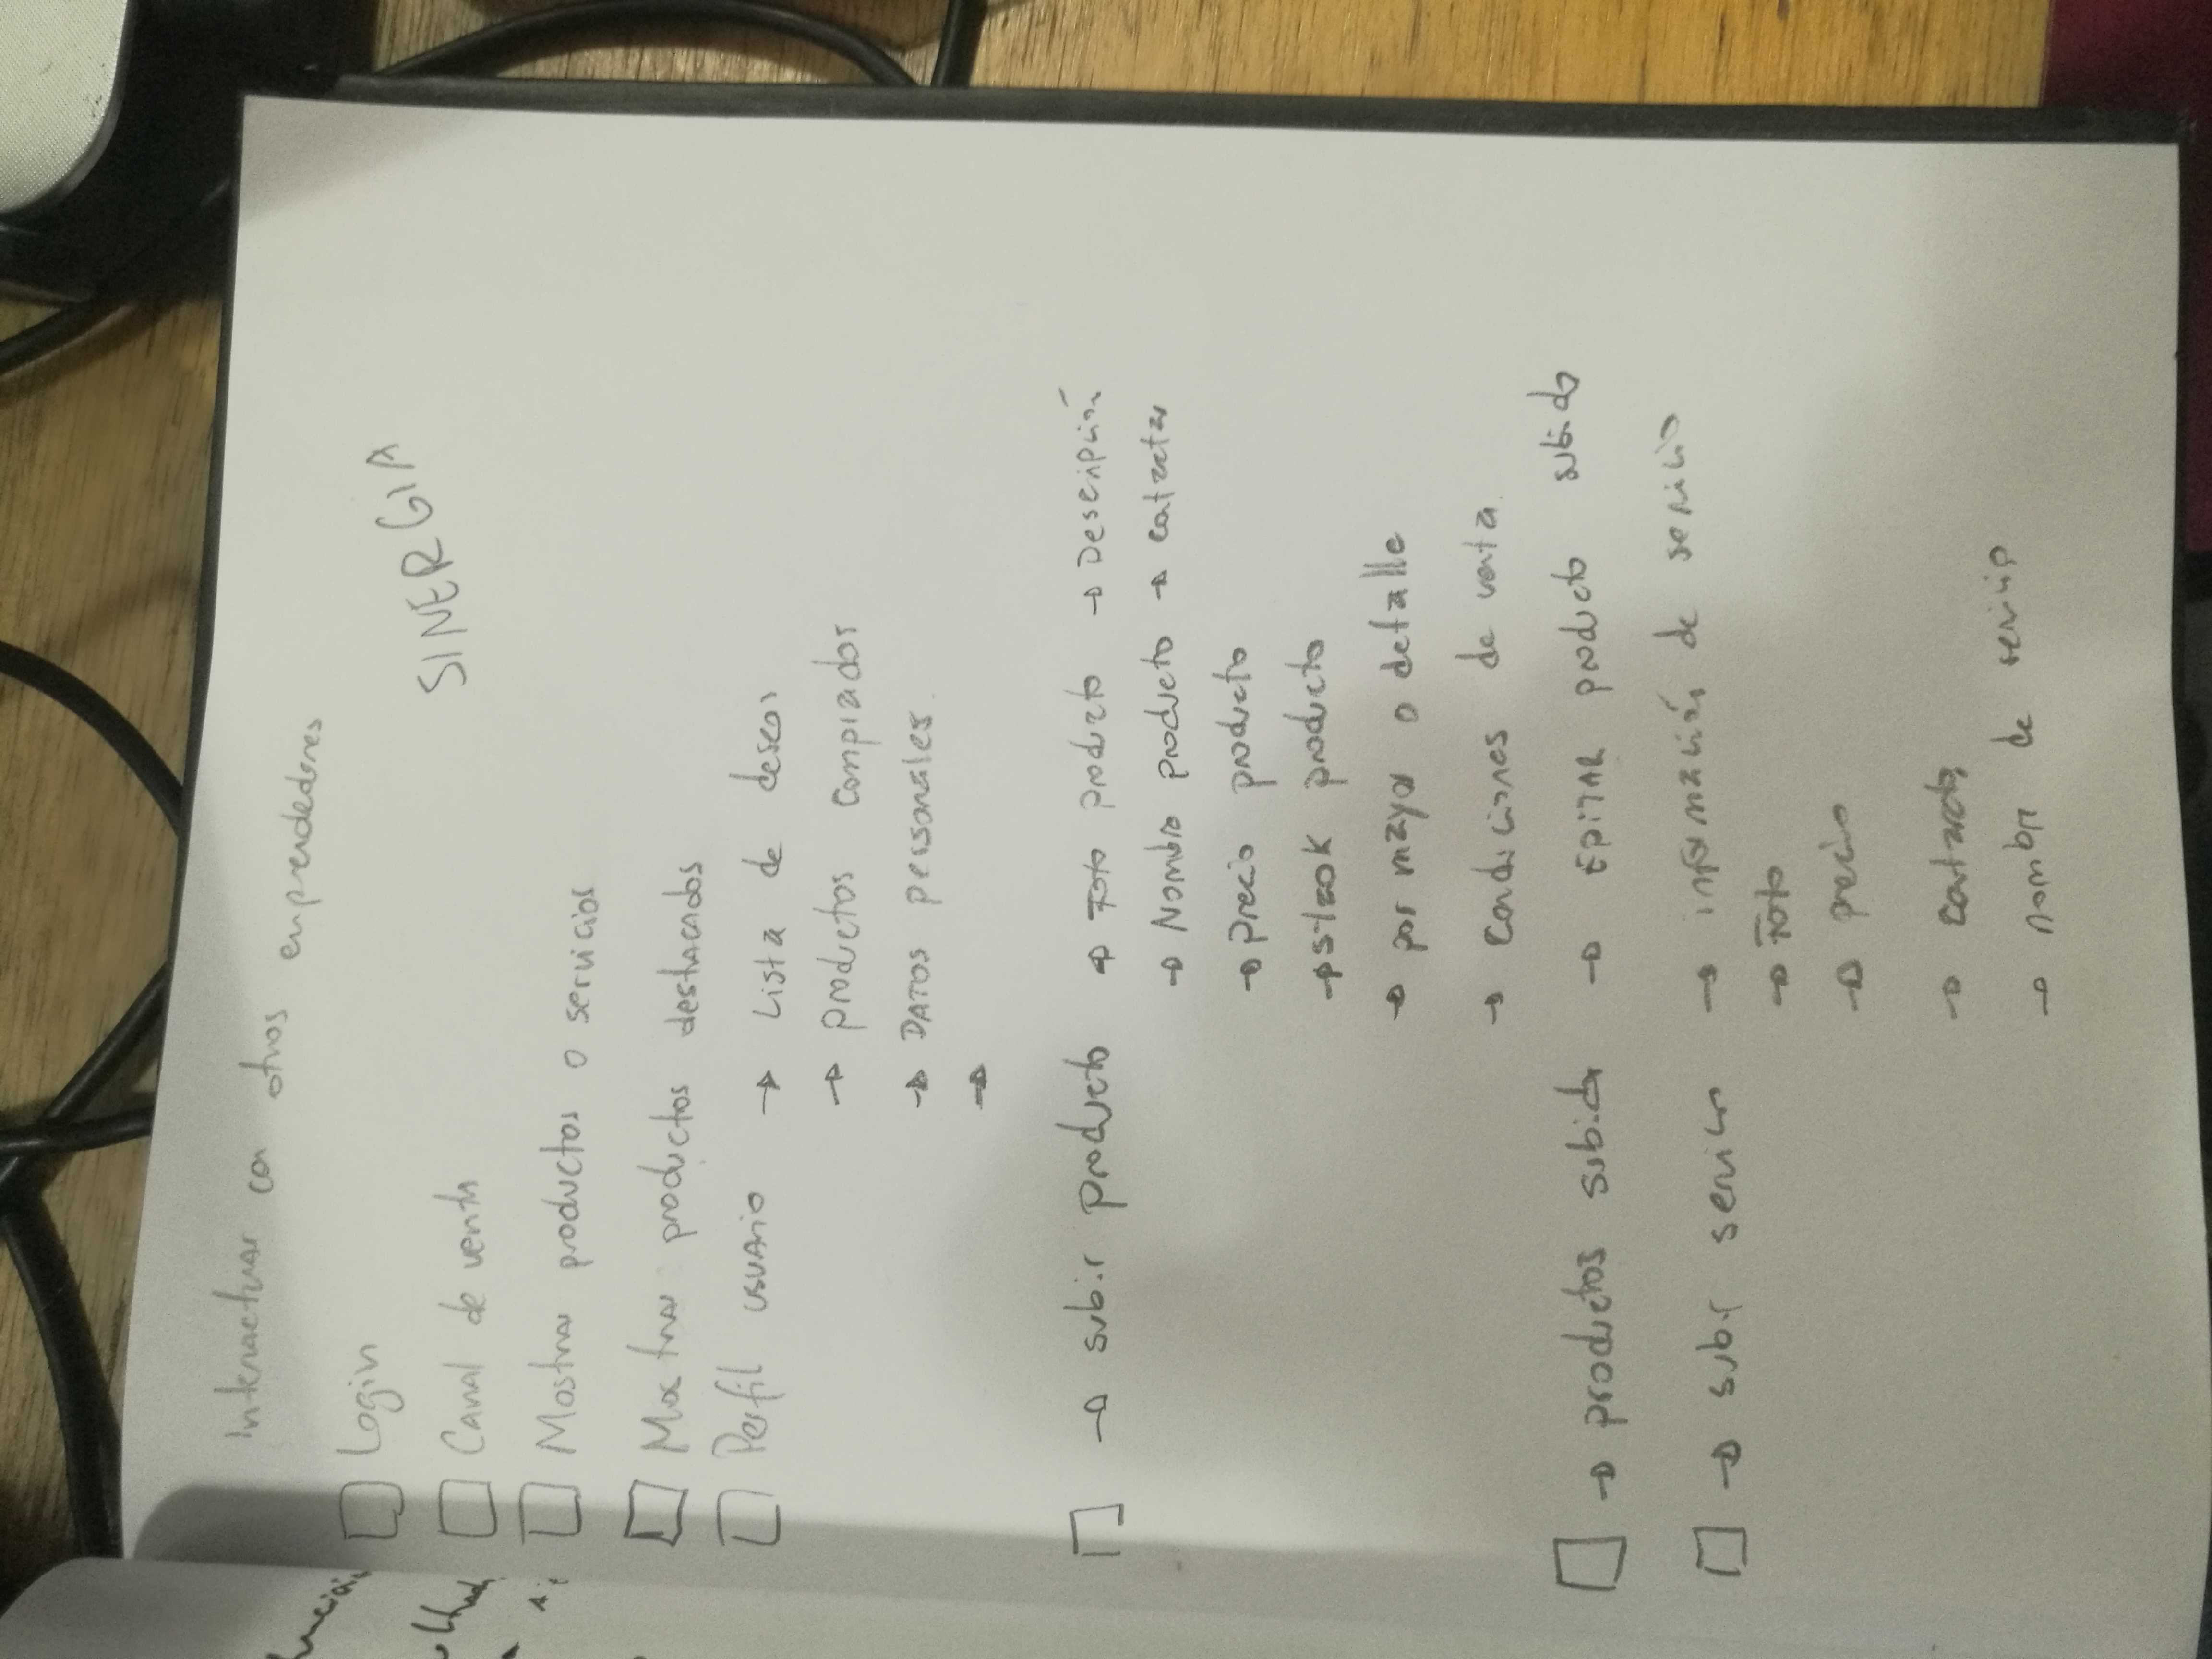 Interactuar con otros emprendedores
SINERGIA
Login
Canal de venta
Mostrar productos o servicios
Mostrar productos destacados
Perfil usuario → Lista de deseos
→ productos comprados
→ DATOS personales
→
→ subir producto → Foto producto → Descripción
→ Nombre producto → contactar
→ precio producto
→ stock producto
→ por mayor o detalle
→ condiciones de venta
→ productos subidos → EDITAR producto subido
→ subir servicio → información de servicio
→ Foto
→ precio
→ contacto
→ nombre de servicio